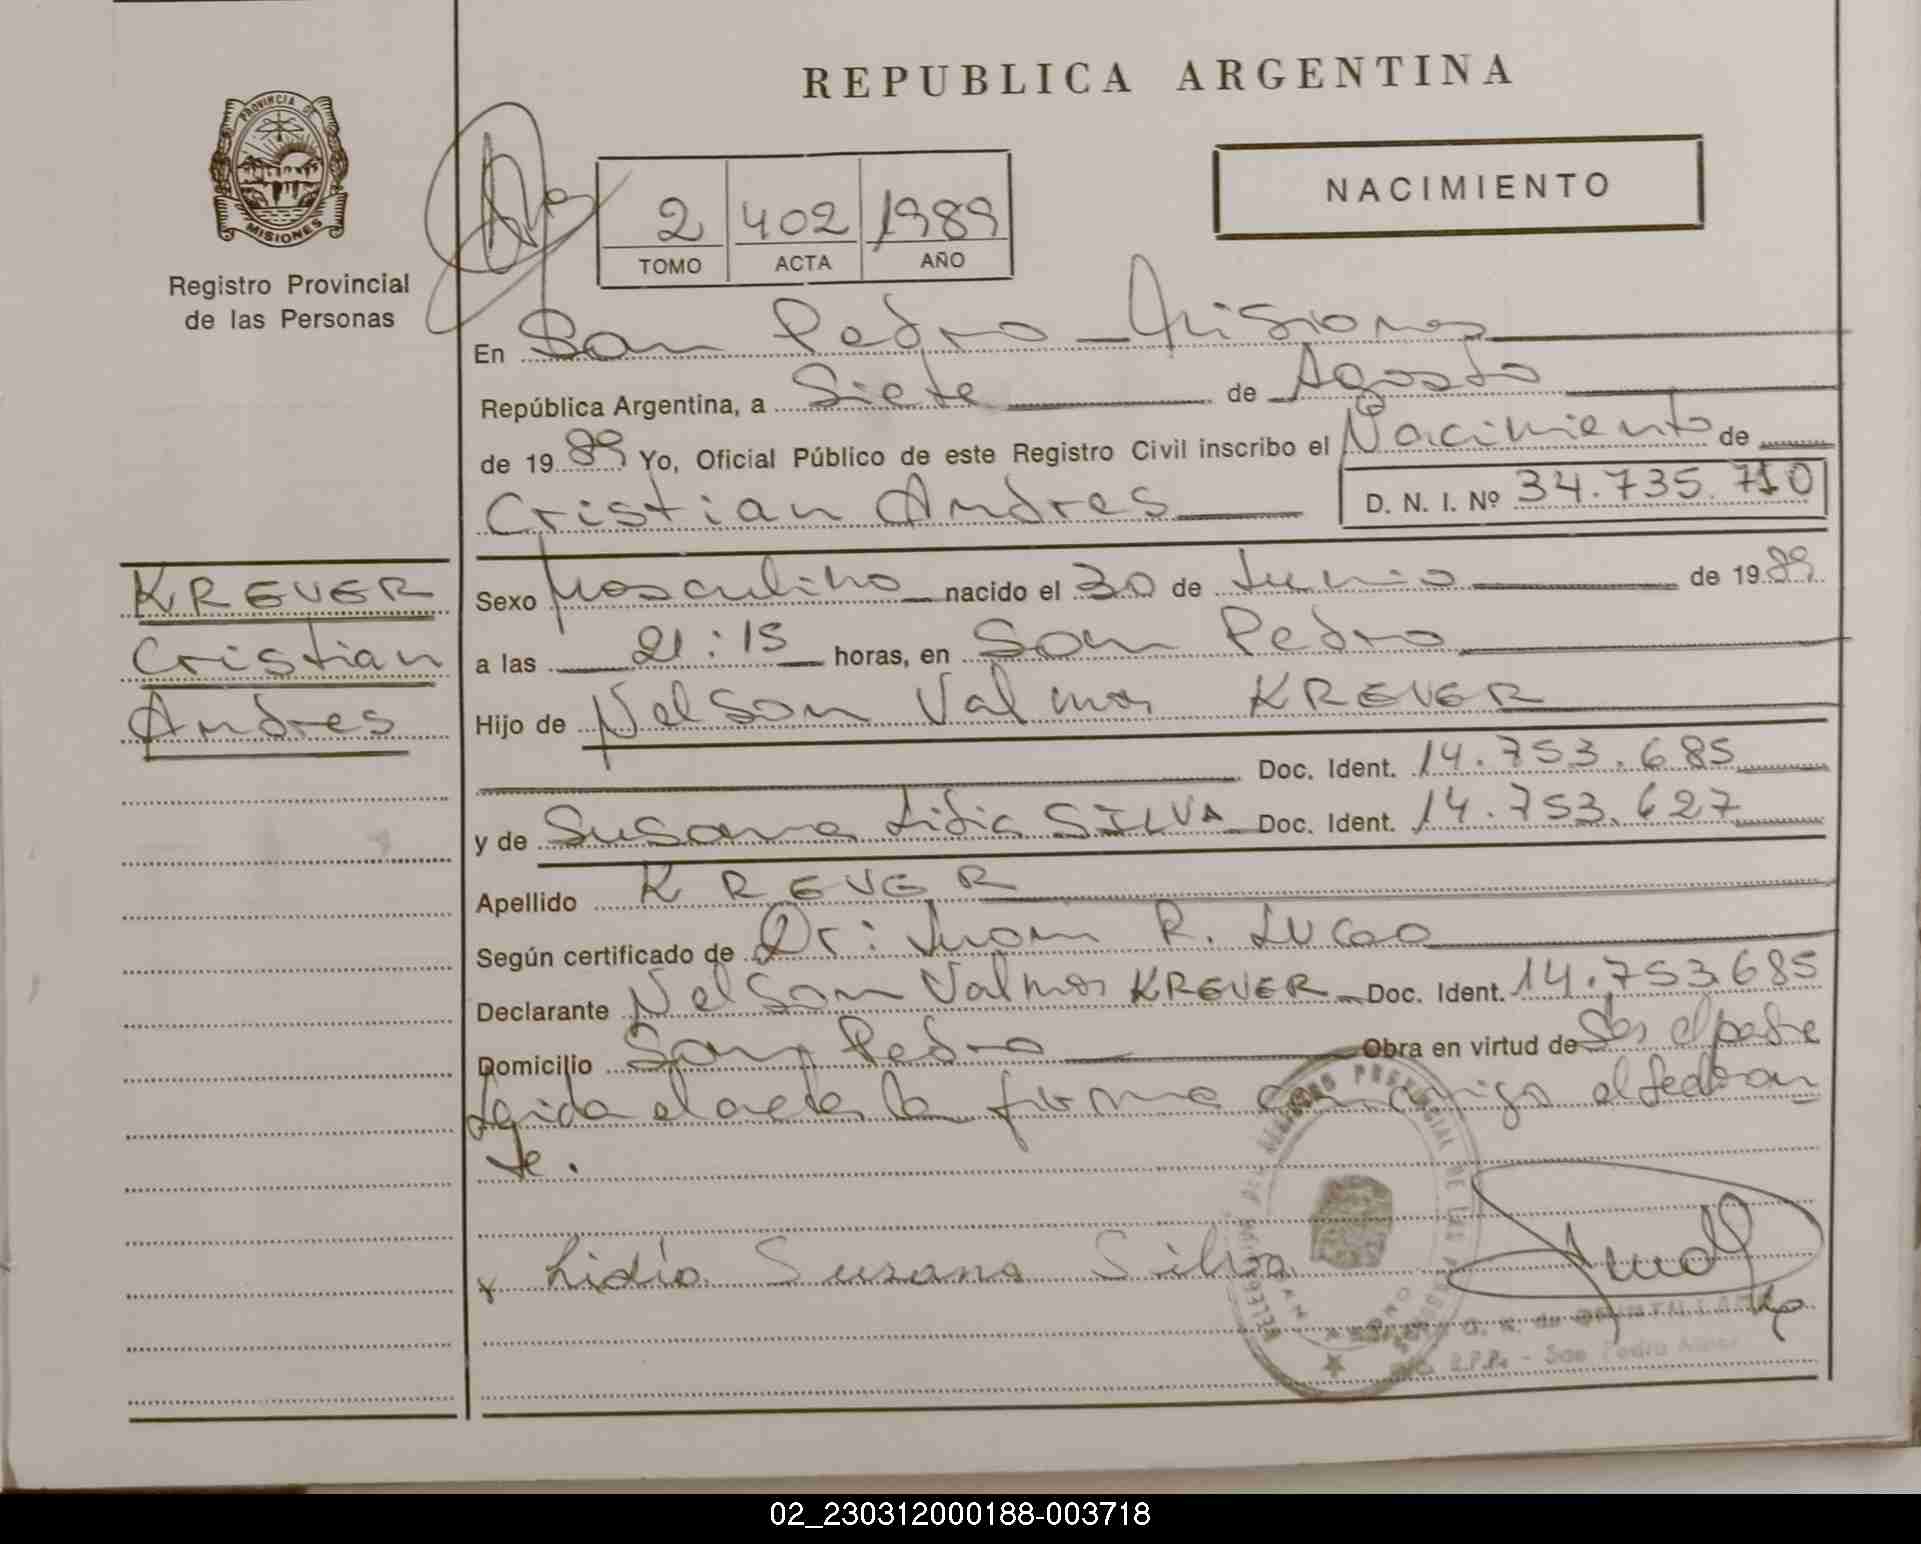 REPUBLICA ARGENTINA
PROVINCIA DE
MISIONES
Registro Provincial
de las Personas
2 402 1989
TOMO ACTA AÑO
NACIMIENTO
En San Pedro - Misiones
República Argentina, a Siete de Agosto
de 1989 Yo, Oficial Público de este Registro Civil inscribo el Nacimiento de
Cristian Andres D. N. I. Nº 34.735.710
KREVER
Cristian
Andres
Sexo Masculino nacido el 30 de Junio de 1989
a las 21:15 horas, en San Pedro
Hijo de Nelson Valmor KREVER
Doc. Ident. 14.753.685
y de Susana Lidia SILVA Doc. Ident. 14.753.627
Apellido KREVER
Según certificado de Dr: Juan R. Lucas
Declarante Nelson Valmor KREVER Doc. Ident. 14.753685
Domicilio San Pedro Obra en virtud de Ser el padre
Leida el acta la firma conmigo el declaran
te.
x Lidia Susana Silva
REGISTRO PROVINCIAL DE LAS PERSONAS
San Pedro
02_230312000188-003718